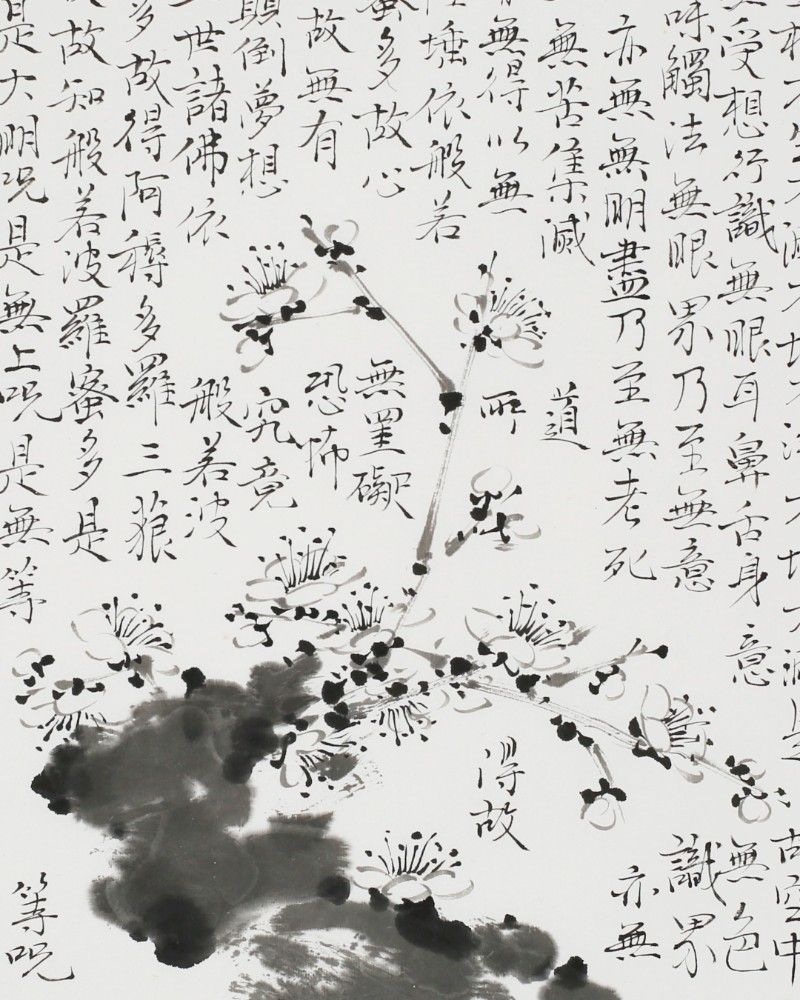 相不生不滅不垢不淨不增不減是故空中
受想行識無眼耳鼻舌身意無色
味觸法無眼界乃至無意識界
亦無無明盡乃至無老死亦無
無苦集滅道
無得以無所得故
埵依般若
蜜多故心無罣礙
故無有恐怖
顛倒夢想究竟
世諸佛依般若波
多故得阿耨多羅三藐
故知般若波羅蜜多是
是大明呪是無上呪是無等等呪